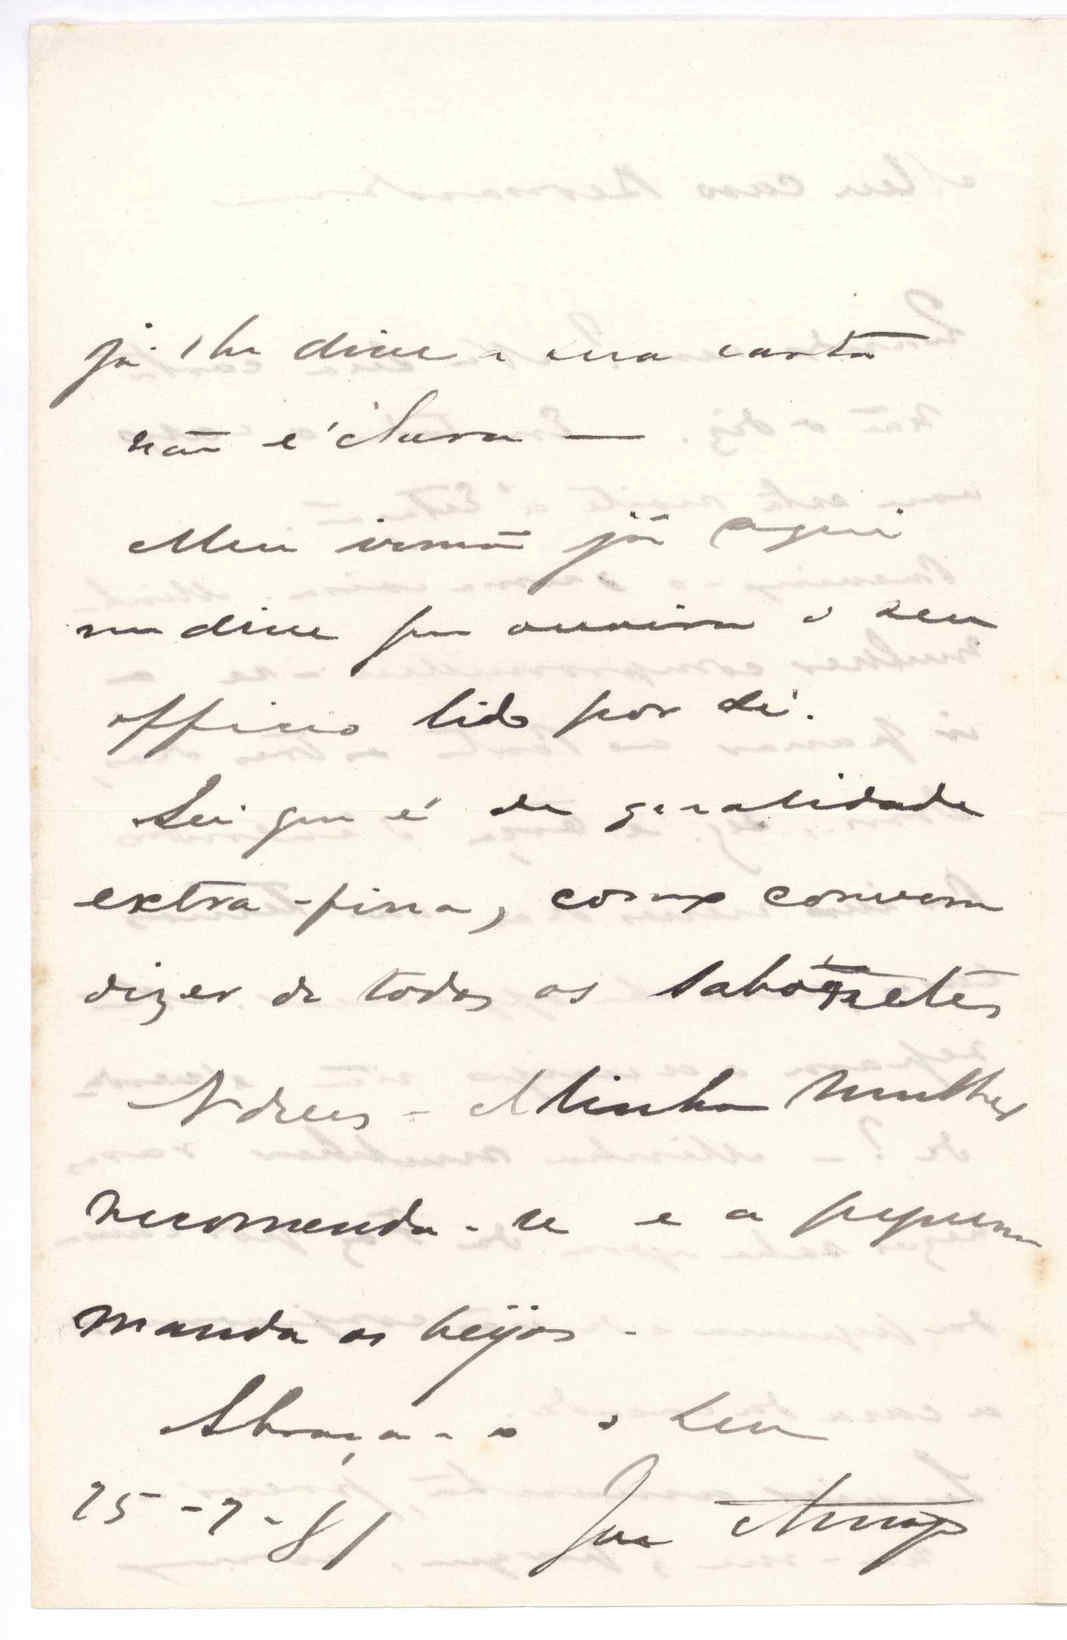 já lhe disse a sua carta
não é clara —
Meu irmão já aqui
me disse que ouvira o seu
officio lido por si.
Sei que é de qualidade
extra-fina, como convem
dizer de todos os sabonetes
Adeus - Minha mulher
recomenda-se e a pequena
manda os beijos -
Abraça-o o seu
25-7-81